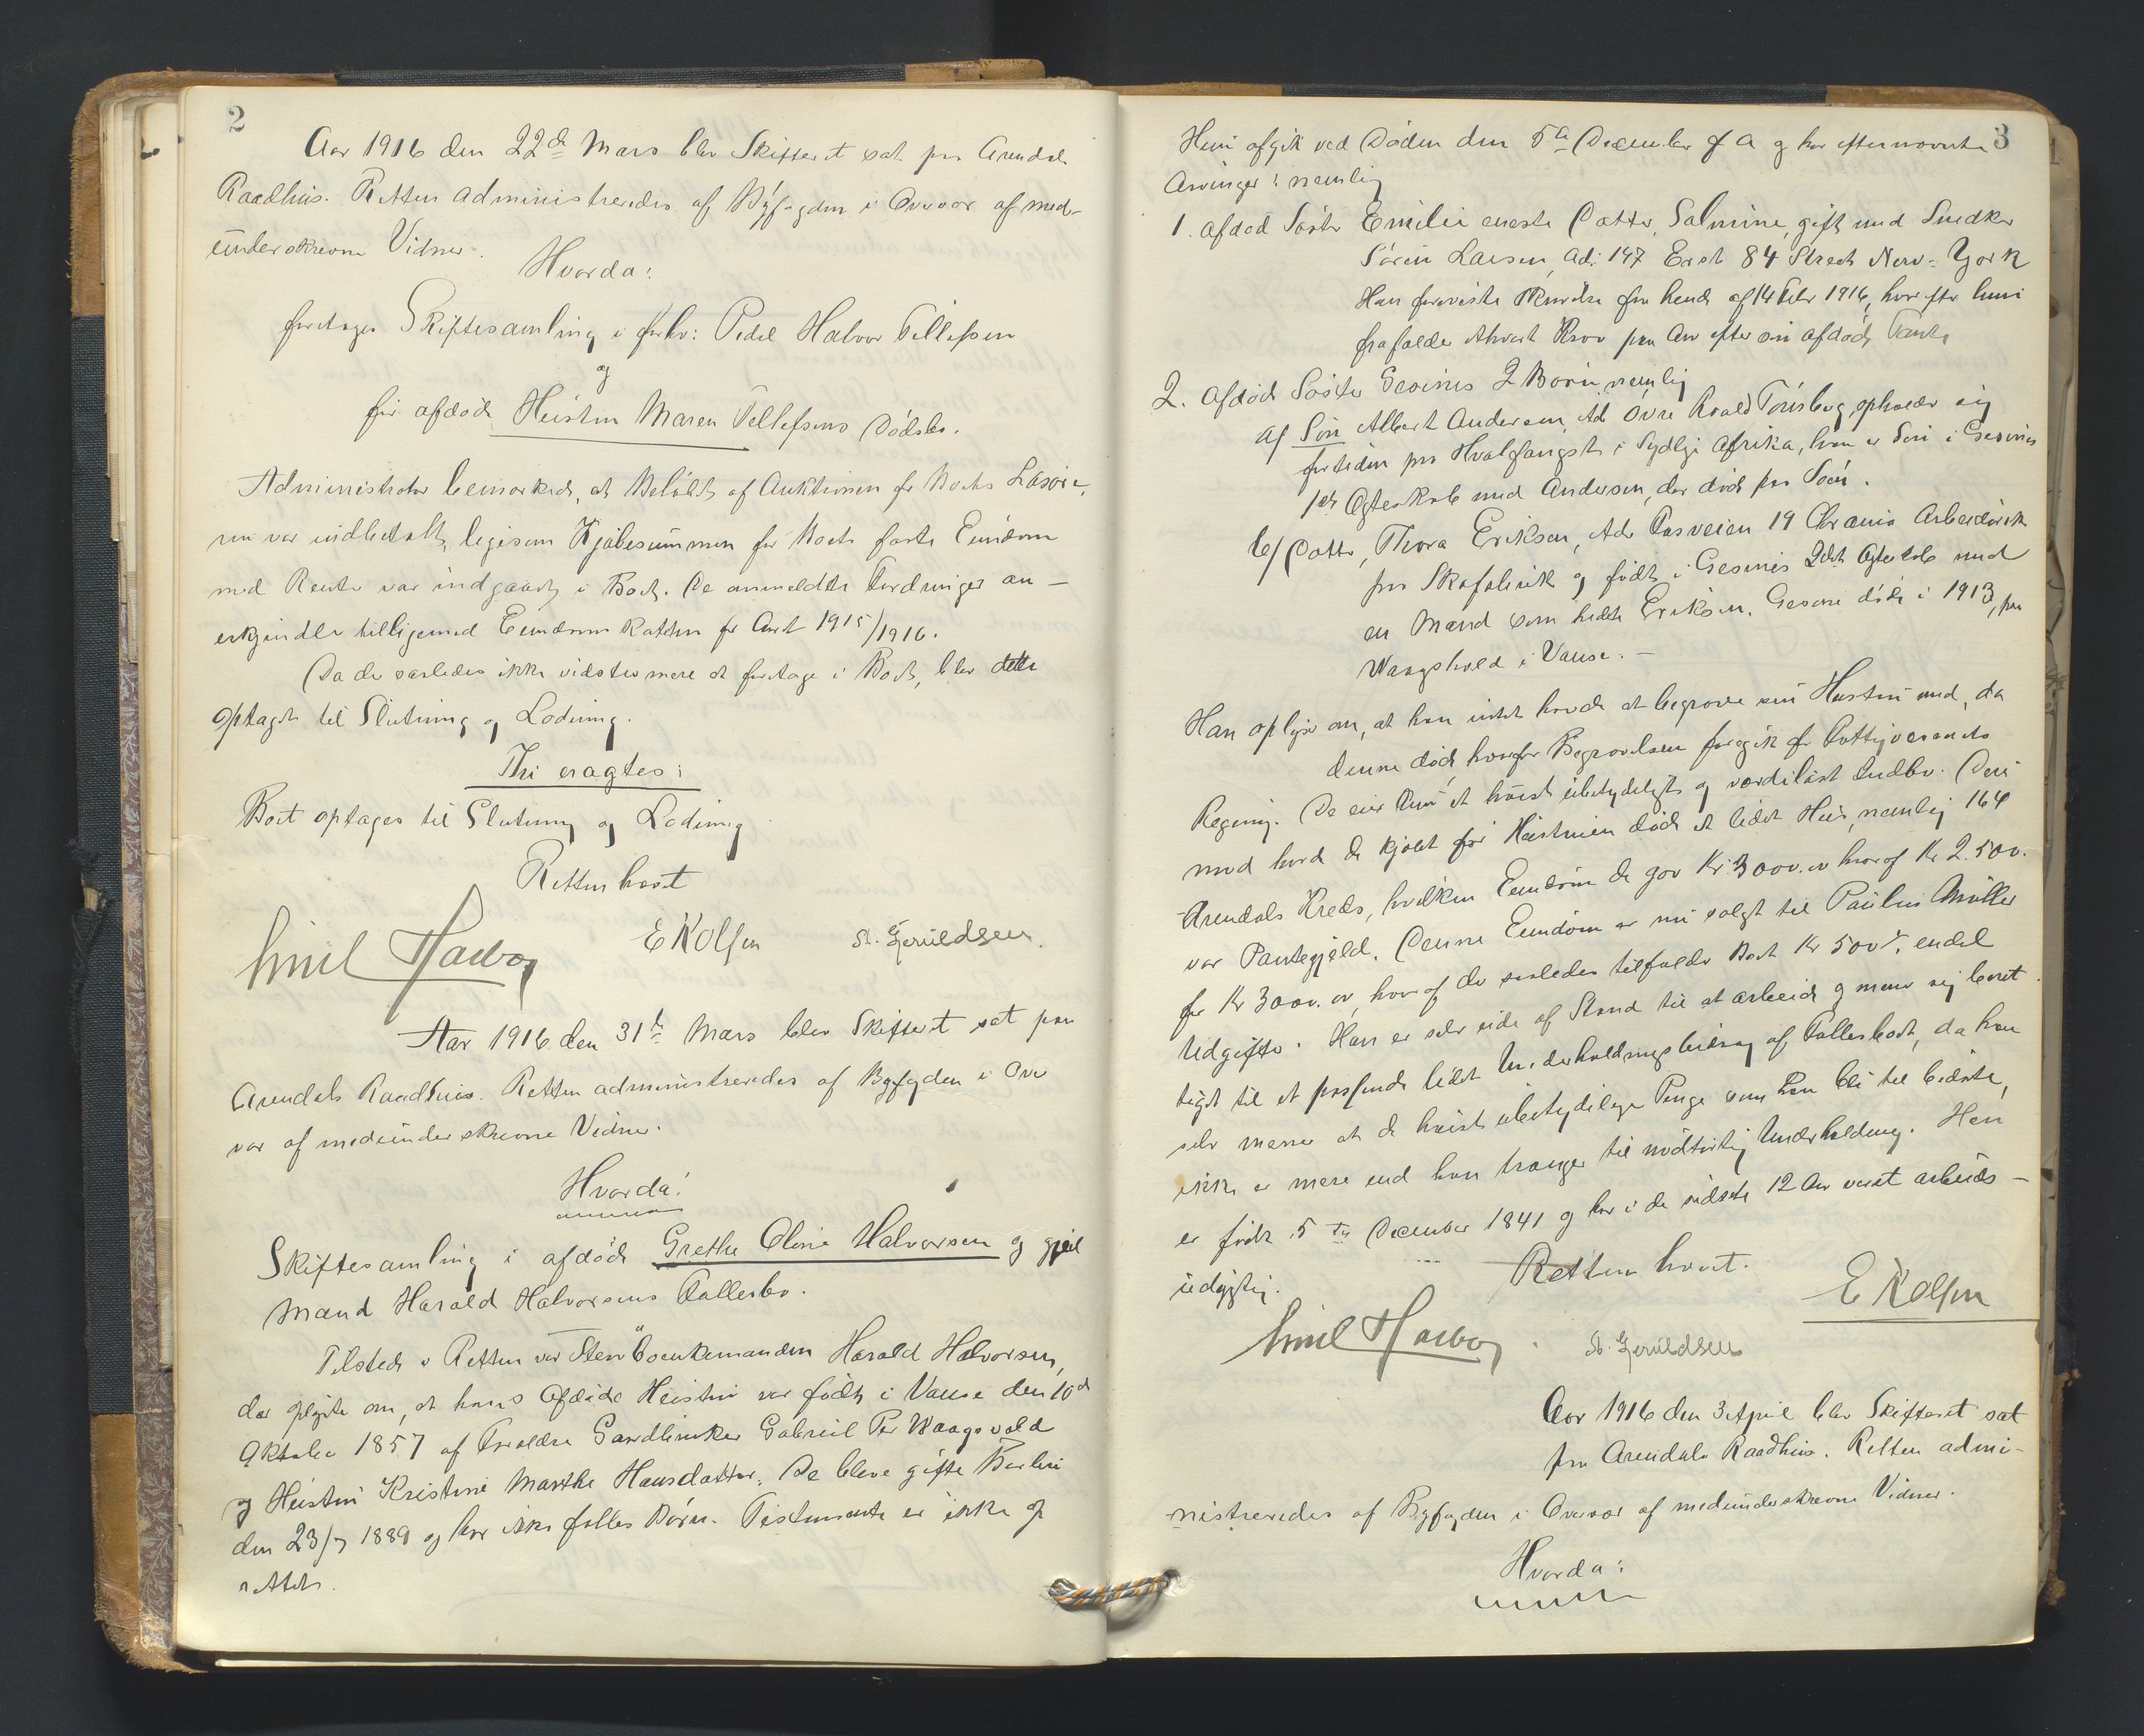 2
Aar 1916 den 22de Mars blev Skifteret sat paa Arendals
Raadhus. Retten administreredes af Byfogden i Overvær af med-
underskrevne Vidner.
Hvorda:
foretages Skiftesamling i Halvor Tellefsen
og
for afdøde Hustru Maren Tellefsens Dødsbo.
Administrator bemærkede, at Beløbet af Auktionen for Boets Løsøre,
nu var indbetalt, ligesom Kjøbesummen for Boets faste Eiendom
med Renter var indgaaet i Boet. De anmeldte Fordringer an-
erkjendtes tilligemed Eiendomsskatten for Aaret 1915/1916.
Da der saaledes ikke vidstes mere at foretage i Boet, blev dette
optaget til Slutning og Lodning.
Thi eragtes:
Boet optages til Slutning og Lodning
Retten hævet
Emil Harboe E K Olsen St. Gjeruldsen.
Aar 1916 den 31te Mars blev Skifteret sat paa
Arendals Raadhus. Retten administreredes af Byfogden i Over
vær af medunderskrevne Vidner.
Hvorda:
Skiftesamling i afdøde Grethe Oline Halvorsen og gjenl
Mand Harald Halvorsens Fællesbo.
Tilstede v Retten var Harald Halvorsen,
der oplyste om, at hans Afdøde Hustru var født i Vanse den 10de
Oktober 1857 af Forældre Gaardbruker Gabriel Per Waagsvold
og Hustru Kristine Marthe Hansdatter. De bleve gifte
den 23/7 1889 og har ikke fælles Børn. Testamente er ikke op
rettet.
3
Hun afgik ved Døden den 5te December f A og har efternævnte
Arvinger: nemlig
1. Afdød Søster Emilie eneste Datter, Salmine, gift med Snedker
Sørin Larsen, Ad: 147 East 84 Street New-York
Han foreviste Skrivelse fra hende af 14 Febr 1916, hvorefter hun
frafalder ethvert Krav paa Arv efter sin afdøde Tante
2. Afdød Søster Gesines 2 Børn nemlig
a/ Søn Albert Andersen, Ad Øvre Roald Tønsberg, opholder sig
fortiden paa Hvalfangst i Sydlige Afrika, han er Søn i Gesines
1ste Ægteskab med Andersen, der døde paa Søen.
b/ Datter, Thora Eriksen, Adr Aasveien 19 Chrania Arbeiderske
paa Skofabrik og født i Gesines 2det Ægteskab med
en Mand som hedte Eriksen. Gesine døde i 1913, paa
Waagsvold i Vanse. -
Han oplyser om, at han intet havde at begrave sin Hustru med, da
denne døde hvorfor Begravelsen foregik for Fattigvæsenets
Regning. De eier kun et høist ubetydeligt og værdiløst Indbo. Deri
mod havde de kjøbt før Hustruen døde et lidet Hus, nemlig 164
Arendals Kreds, hvilken Eiendom de gav Kr. 3000.00 hvoraf Kr 2.500.
var Pantegjeld. Denne Eiendom er nu solgt til Paulus Møller
for Kr 3000.00, hvoraf der saaledes tilfalder Boet Kr 500 ÷ endel
Udgifter. Han er selv ude af Stand til at arbeide og mener sig beret
tiget til et passende lidet Underholdningsbidrag af Fællesboet, da han
selv mener at de høist ubetydelige Penge som kan bli til bedste,
ikke er mere end han trænger til nødtørftig Underholdning. Han
er født 5te December 1841 og har i de sidste 12 Aar været arbeids-
udygtig.
Retten hævet.
Emil Harboe St. Gjeruldsen E K Olsen
Aar 1916 den 3 April blev Skifteret sat
paa Arendals Raadhus. Retten admi-
nistreredes af Byfogden i Overvær af medunderskrevne Vidner.
Hvorda: